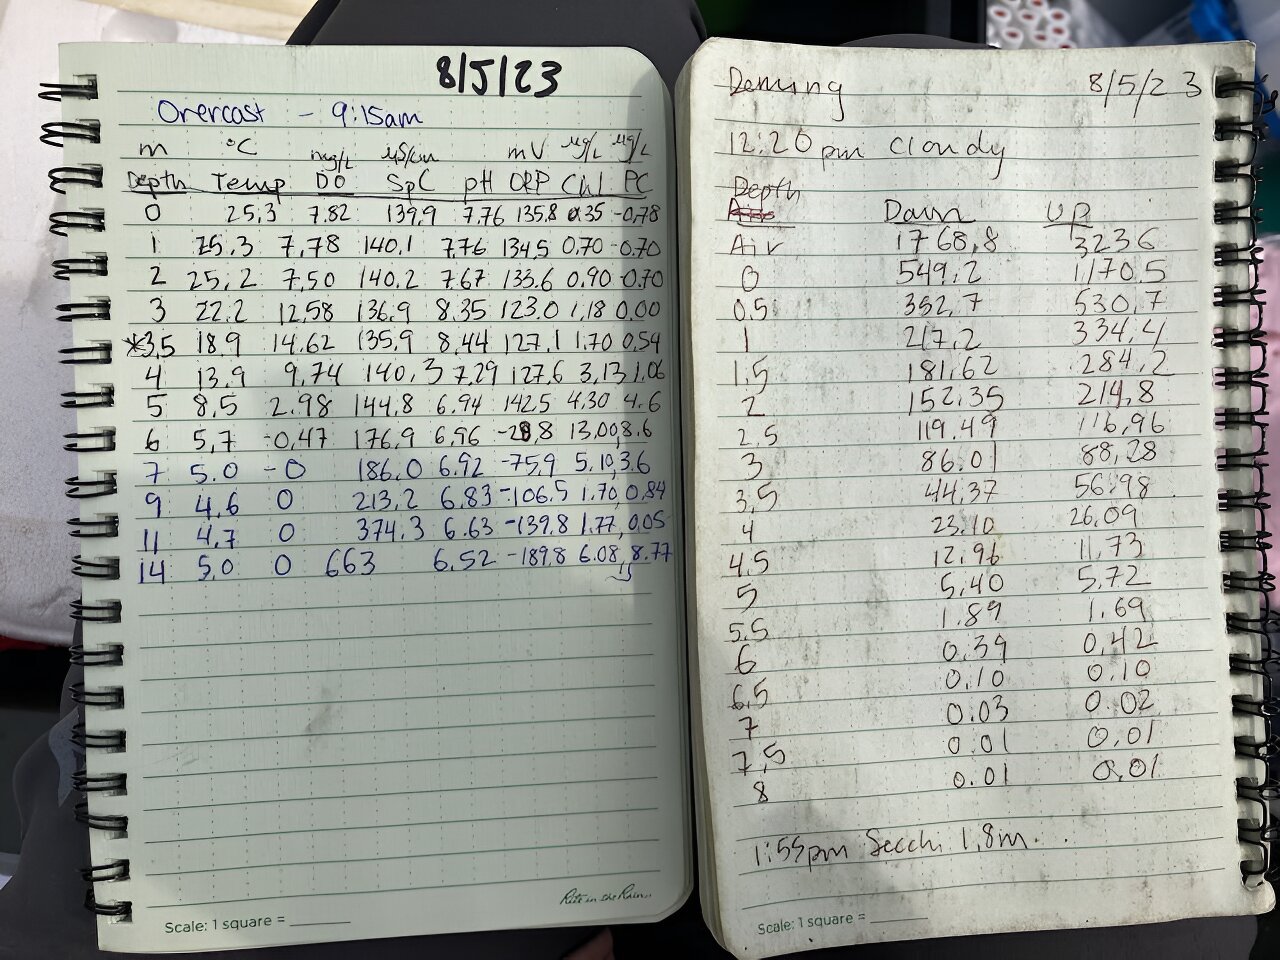 8/5/23
Overcast - 9:15am
m °C mg/L µS/cm mV µg/L µg/L
Depth Temp DO SpC pH ORP Chl PC
0 25.3 7.82 139.9 7.76 135.8 0.35 -0.78
1 25.3 7.78 140.1 7.76 134.5 0.70 -0.70
2 25.2 7.50 140.2 7.67 133.6 0.90 -0.70
3 22.2 12.58 136.9 8.35 123.0 1.18 0.00
*3.5 18.9 14.62 135.9 8.44 127.1 1.70 0.54
4 13.9 9.74 140.3 7.29 127.6 3.13 1.06
5 8.5 2.98 144.8 6.94 142.5 4.30 4.6
6 5.7 -0.47 176.9 6.96 13.00, 8.6
7 5.0 - 0 186.0 6.92 -75.9 5.10, 3.6
9 4.6 0 213.2 6.83 -106.5 1.70, 0.84
11 4.7 0 374.3 6.63 -139.8 1.77, 0.05
14 5.0 0 663 6.52 -189.8 6.08, 8.77
Rite in the Rain
Scale: 1 square = ______
Deming 8/5/23
12:20 pm cloudy
Depth
Down up
Air 1768.8 3236
0 549.2 1170.5
0.5 352.7 530.7
1 217.2 334.4
1.5 181.62 284.2
2 152.35 214.8
2.5 119.49 116.96
3 86.01 88.28
3.5 44.37 56.98
4 23.10 26.09
4.5 12.96 11.73
5 5.40 5.72
5.5 1.89 1.69
6 0.39 0.42
6.5 0.10 0.10
7 0.03 0.02
7.5 0.01 0.01
8 0.01 0.01
1:55pm Secchi 1.8m.
Scale: 1 square = ______